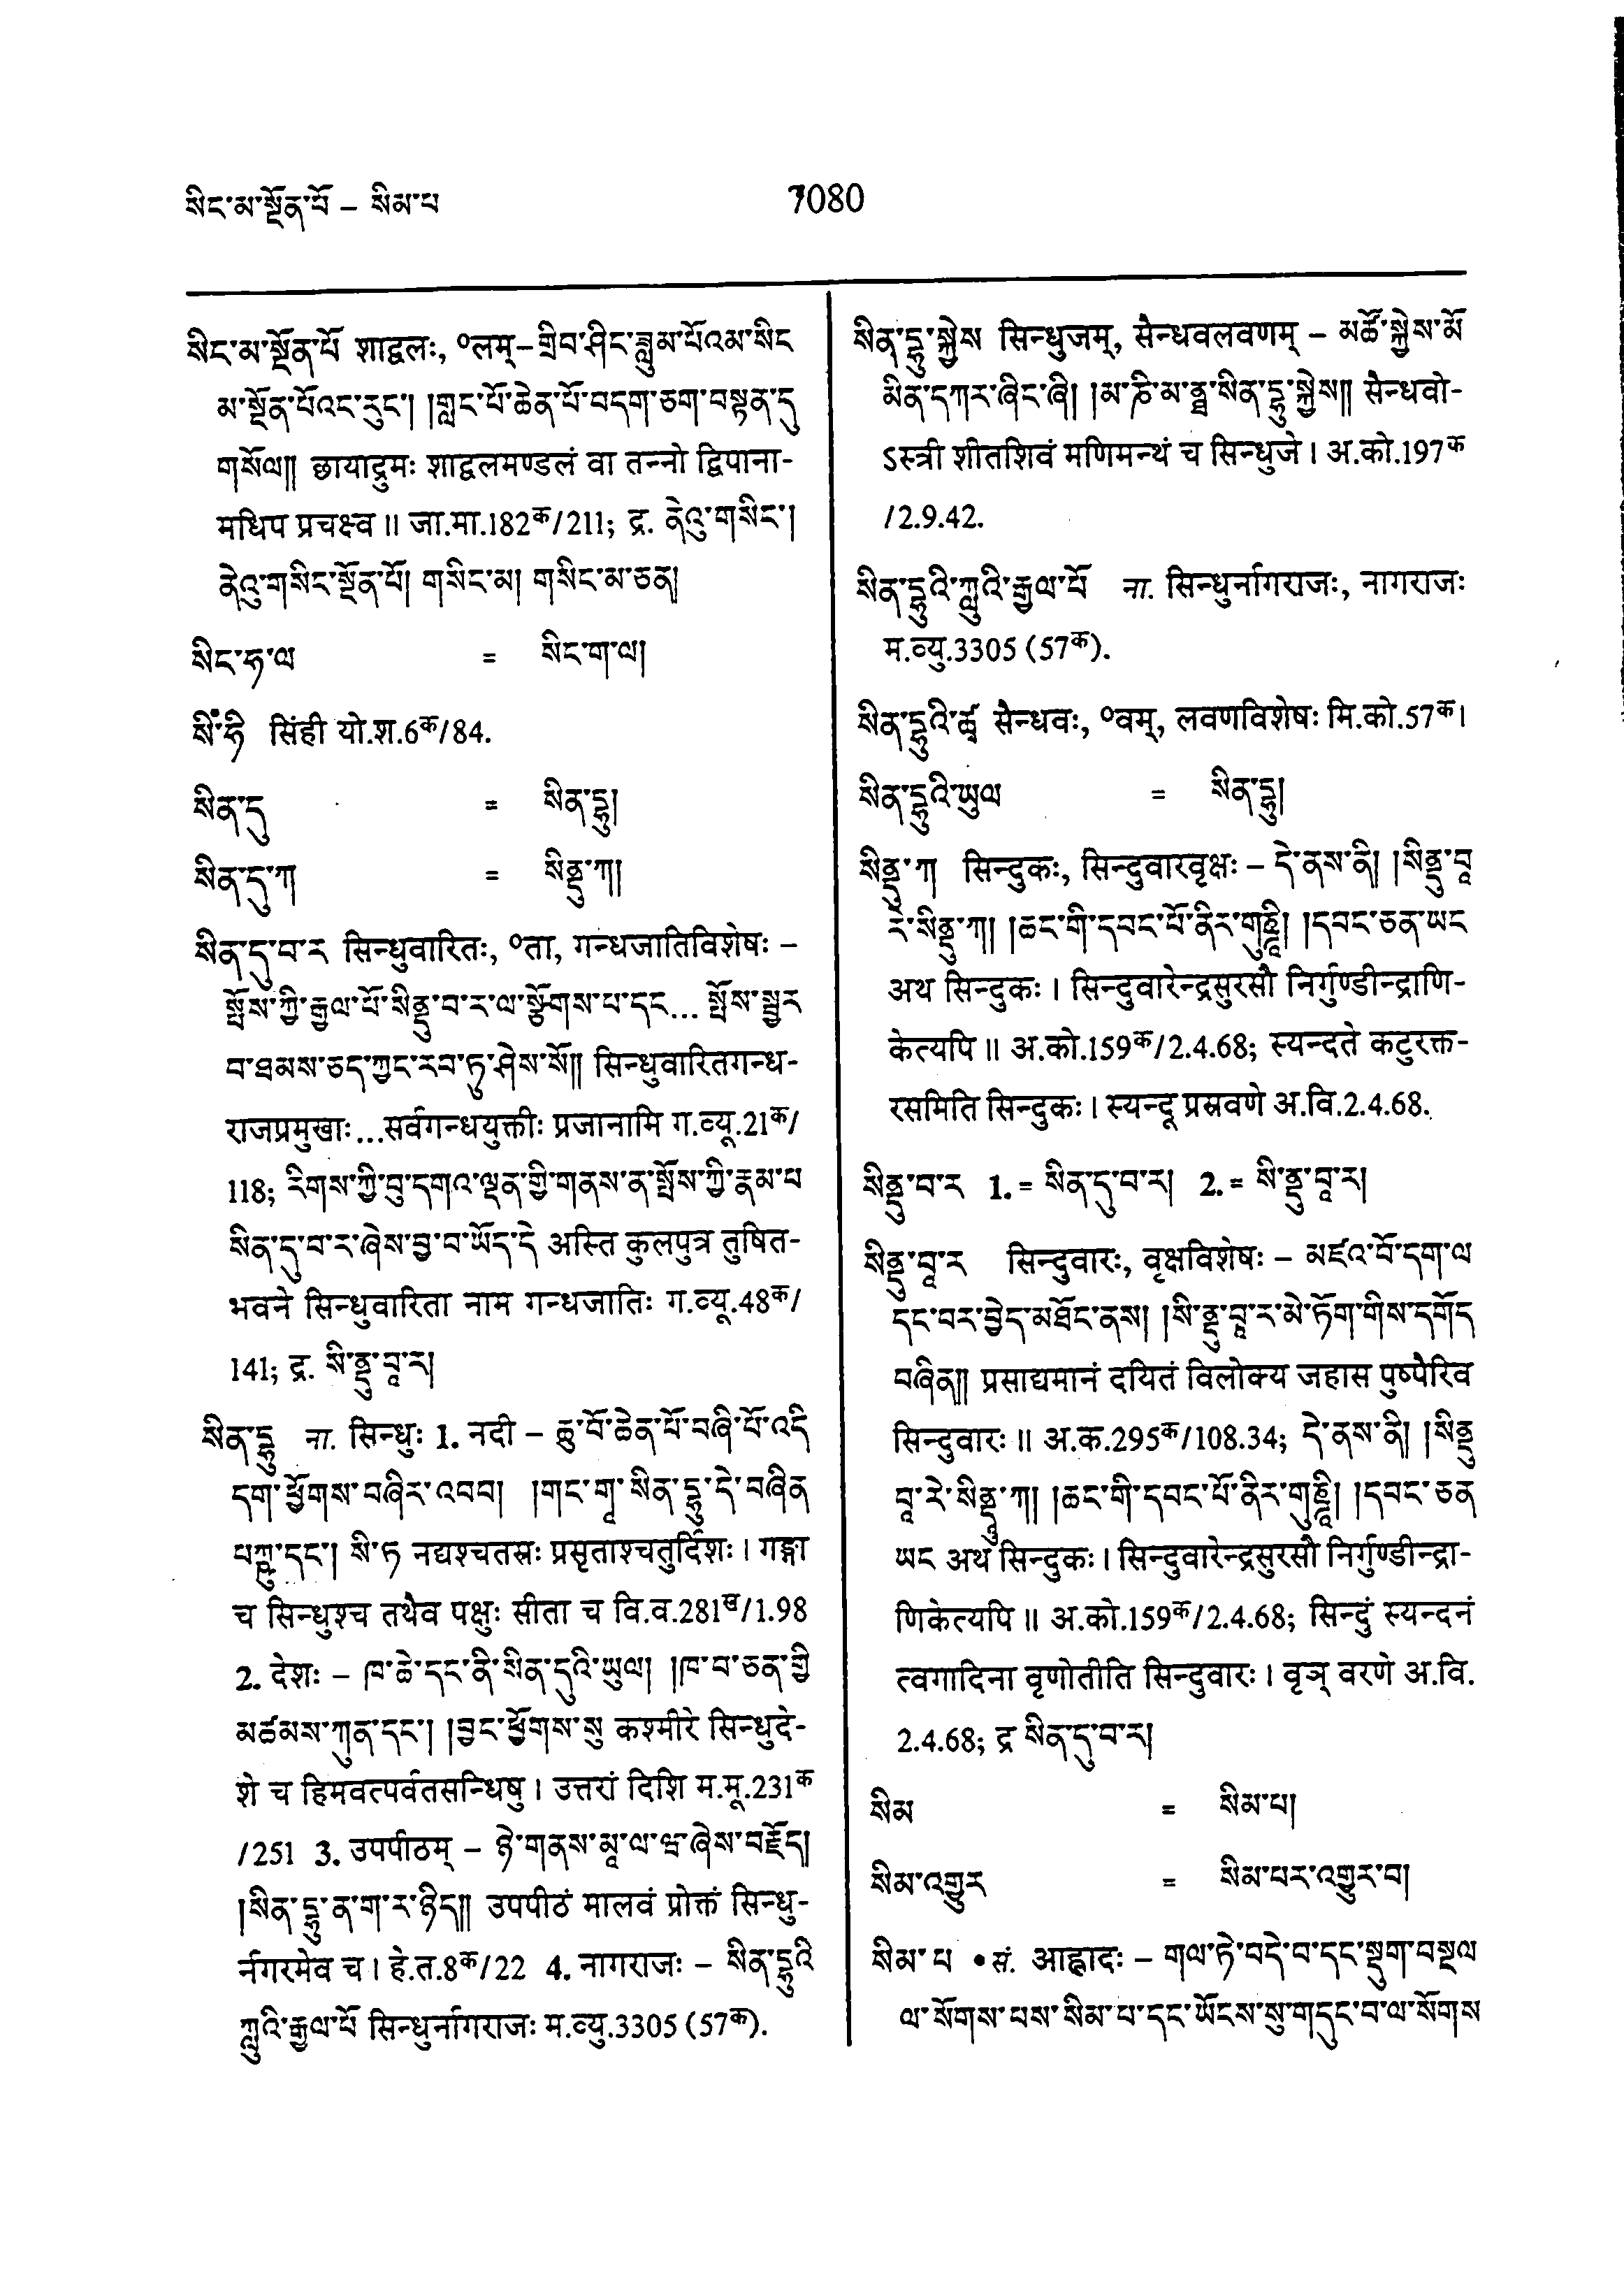 སིང་མ་སྔོན་པོ – སིམ་པ
7080
སིང་མ་སྔོན་པོ शाद्वलः, ०लम्–གྲིབ་ཤིང་ཟླུམ་པོའམ་སིང
མ་སྔོན་པོའང་རུང་། །གླང་པོ་ཆེན་པོ་བདག་ཅག་བསྟན་དུ
གསོལ།། छायाद्रुमः शाद्वलमण्डलं वा तन्नो द्विपाना-
मधिप प्रचक्ष्व ॥ जा.मा.182क/211; द्र. ནེའུ་གསིང་།
ནེའུ་གསིང་སྔོན་པོ། གསིང་མ། གསིང་མ་ཅན།
སིང་ཧ་ལ = སིང་ག་ལ།
སིཾ་ཧི सिंही यो.श.6क/84.
སིན་དུ = སིན་དྷུ།
སིན་དུ་ཀ = སིནྡུ་ཀ།
སིན་དུ་བ་ར सिन्धुवारितः, ०ता, गन्धजातिविशेषः –
སྤོས་ཀྱི་རྒྱལ་པོ་སིནྡུ་བ་ར་ལ་སྩོགས་པ་དང... སྤོས་སྦྱར
བ་ཐམས་ཅད་ཀྱང་རབ་ཏུ་ཤེས་སོ།། सिन्धुवारितगन्ध-
राजप्रमुखाः...सर्वगन्धयुक्तीः प्रजानामि ग.व्यू.21क/
118; རིགས་ཀྱི་བུ་དགའ་ལྡན་གྱི་གནས་ན་སྤོས་ཀྱི་རྣམ་པ
སིན་དུ་བ་ར་ཞེས་བྱ་བ་ཡོད་དེ अस्ति कुलपुत्र तुषित-
भवने सिन्धुवारिता नाम गन्धजातिः ग.व्यू.48क/
141; द्र. སི་ནྡུ་བཱ་ར།
སིན་དྷུ ना. सिन्धुः 1. नदी – ཆུ་བོ་ཆེན་པོ་བཞི་པོ་འདི
དག་ཕྱོགས་བཞིར་འབབ། །གང་གཱ་སིན་དྷུ་དེ་བཞིན
པཀྵུ་དང་། སི་ཏ नद्यश्चतस्रः प्रसृताश्चतुर्दिशः। गङ्गा
च सिन्धुश्च तथैव पक्षुः सीता च वि.व.281ख/1.98
2. देशः – ཁ་ཆེ་དང་ནི་སིན་དུའི་ཡུལ། །ཁ་བ་ཅན་གྱི
མཚམས་ཀུན་དང་། །བྱང་ཕྱོགས་སུ कश्मीरे सिन्धुदे-
शे च हिमवत्पर्वतसन्धिषु। उत्तरां दिशि म.मू.231क
/251 3. उपपीठम् – ཉེ་གནས་མཱ་ལ་ཝ་ཞེས་བརྗོད།
།སིན་དྷུ་ན་ག་ར་ཉིད།། उपपीठं मालवं प्रोक्तं सिन्धु-
र्नगरमेव च। हे.त.8क/22 4. नागराजः – སིན་དྷུའི
ཀླུའི་རྒྱལ་པོ सिन्धुर्नागराजः म.व्यु.3305 (57क).
སིན་དྷུ་སྐྱེས सिन्धुजम्, सैन्धवलवणम् – མཚོ་སྐྱེས་མོ
མིན་དཀར་ཞིང་ཞི། །མ་ཎི་མ་ནྠ་སིན་དྷུ་སྐྱེས།། सैन्धवो-
ऽस्त्री शीतशिवं मणिमन्थं च सिन्धुजे। अ.को.197क
/2.9.42.
སིན་དྷུའི་ཀླུའི་རྒྱལ་པོ ना. सिन्धुर्नागराजः, नागराजः
म.व्यु.3305 (57क).
སིན་དྷུའི་ཚྭ सैन्धवः, ०वम्, लवणविशेषः मि.को.57क।
སིན་དྷུའི་ཡུལ = སིན་དྷུ།
སིནྡུ་ཀ། सिन्दुकः, सिन्दुवारवृक्षः – དེ་ནས་ནི། །སིནྡུ་བཱ
རེ་སིནྡུ་ཀ། །ཆང་གི་དབང་པོ་ནིར་གུཎྜཱི། །དབང་ཅན་ཡང
अथ सिन्दुकः। सिन्दुवारेन्द्रसुरसौ निर्गुण्डीन्द्राणि-
केत्यपि ॥ अ.को.159क/2.4.68; स्यन्दते कटुरक्त-
रसमिति सिन्दुकः। स्यन्दू प्रस्रवणे अ.वि.2.4.68.
སིནྡུ་བ་ར 1. = སིན་དུ་བ་ར། 2. = སི་ནྡུ་བཱ་ར།
སིནྡུ་བཱ་ར सिन्दुवारः, वृक्षविशेषः – མཛའ་བོ་དག་ལ
དང་བར་བྱེད་མཐོང་ནས། །སི་ནྡུ་བཱ་ར་མེ་ཏོག་གིས་དགོད
བཞིན།། प्रसाद्यमानं दयितं विलोक्य जहास पुष्पैरिव
सिन्दुवारः ॥ अ.क.295क/108.34; དེ་ནས་ནི། །སིནྡུ
བཱ་རེ་སིནྡཱུ་ཀ། །ཆང་གི་དབང་པོ་ནིར་གུཎྜཱི། །དབང་ཅན
ཡང अथ सिन्दुकः। सिन्दुवारेन्द्रसुरसौ निर्गुण्डीन्द्रा-
णिकेत्यपि ॥ अ.को.159क/2.4.68; सिन्दुं स्यन्दनं
त्वगादिना वृणोतीति सिन्दुवारः। वृञ् वरणे अ.वि.
2.4.68; द्र སིན་དུ་བ་ར།
སིམ = སིམ་པ།
སིམ་འགྱུར = སིམ་པར་འགྱུར་བ།
སིམ་པ • सं. आह्लादः – གལ་ཏེ་བདེ་བ་དང་སྡུག་བསྔལ
ལ་སོགས་པས་སིམ་པ་དང་ཡོངས་སུ་གདུང་བ་ལ་སོགས